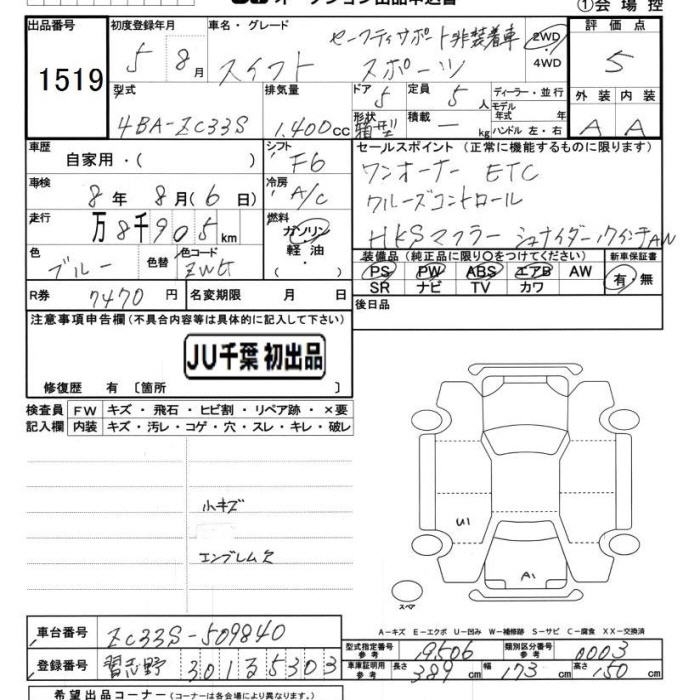 オークション出品申込書 ①会場控
出品番号 初度登録年月 車名・グレード 評価点
1519 5 8月 スイフト スポーツ セーフティサポート非装着車 2WD 4WD 5
型式 排気量 ドア 5 定員 5人 ディーラー・並行 外装 内装
4BA-ZC33S 1,400cc 形状 箱型 積載 ー kg モデル年式 年式 ハンドル 左・右 A A
車歴 自家用・( ) シフト F6 セールスポイント (正常に機能するものに限ります)
車検 8年 8月(6日) 冷房 A/C ワンオーナー ETC
クルーズコントロール
走行 万8千905km 燃料 ガソリン 軽油 ・ HKSマフラー
色 ブルー 色替 色コード ZWG 装備品 (純正品に限り○をつけてください) 新車保証書
PS PW ABS エアB AW 有・無
SR ナビ TV カワ
R券 7470円 名変期限 月 日 後日品
注意事項申告欄 (不具合内容等は具体的に記入して下さい)
JU千葉 初出品
修復歴 有 〔箇所 〕
検査員 FW キズ・飛石・ヒビ割・リペア跡・×要
記入欄 内装 キズ・汚レ・コゲ・穴・スレ・キレ・破レ
小キズ
エンブレム欠
U1
A1
スペア
A-キズ E-エクボ U-凹み W-補修跡 S-サビ C-腐食 XX-交換済
車台番号 ZC33S-509840
型式指定番号 参考 19506 類別区分番号 参考 0003
登録番号 習志野 301 さ 5303
車庫証明用 参考 長さ 389cm 幅 173cm 高さ 150cm
希望出品コーナー (コーナーは各会場により異なります。)